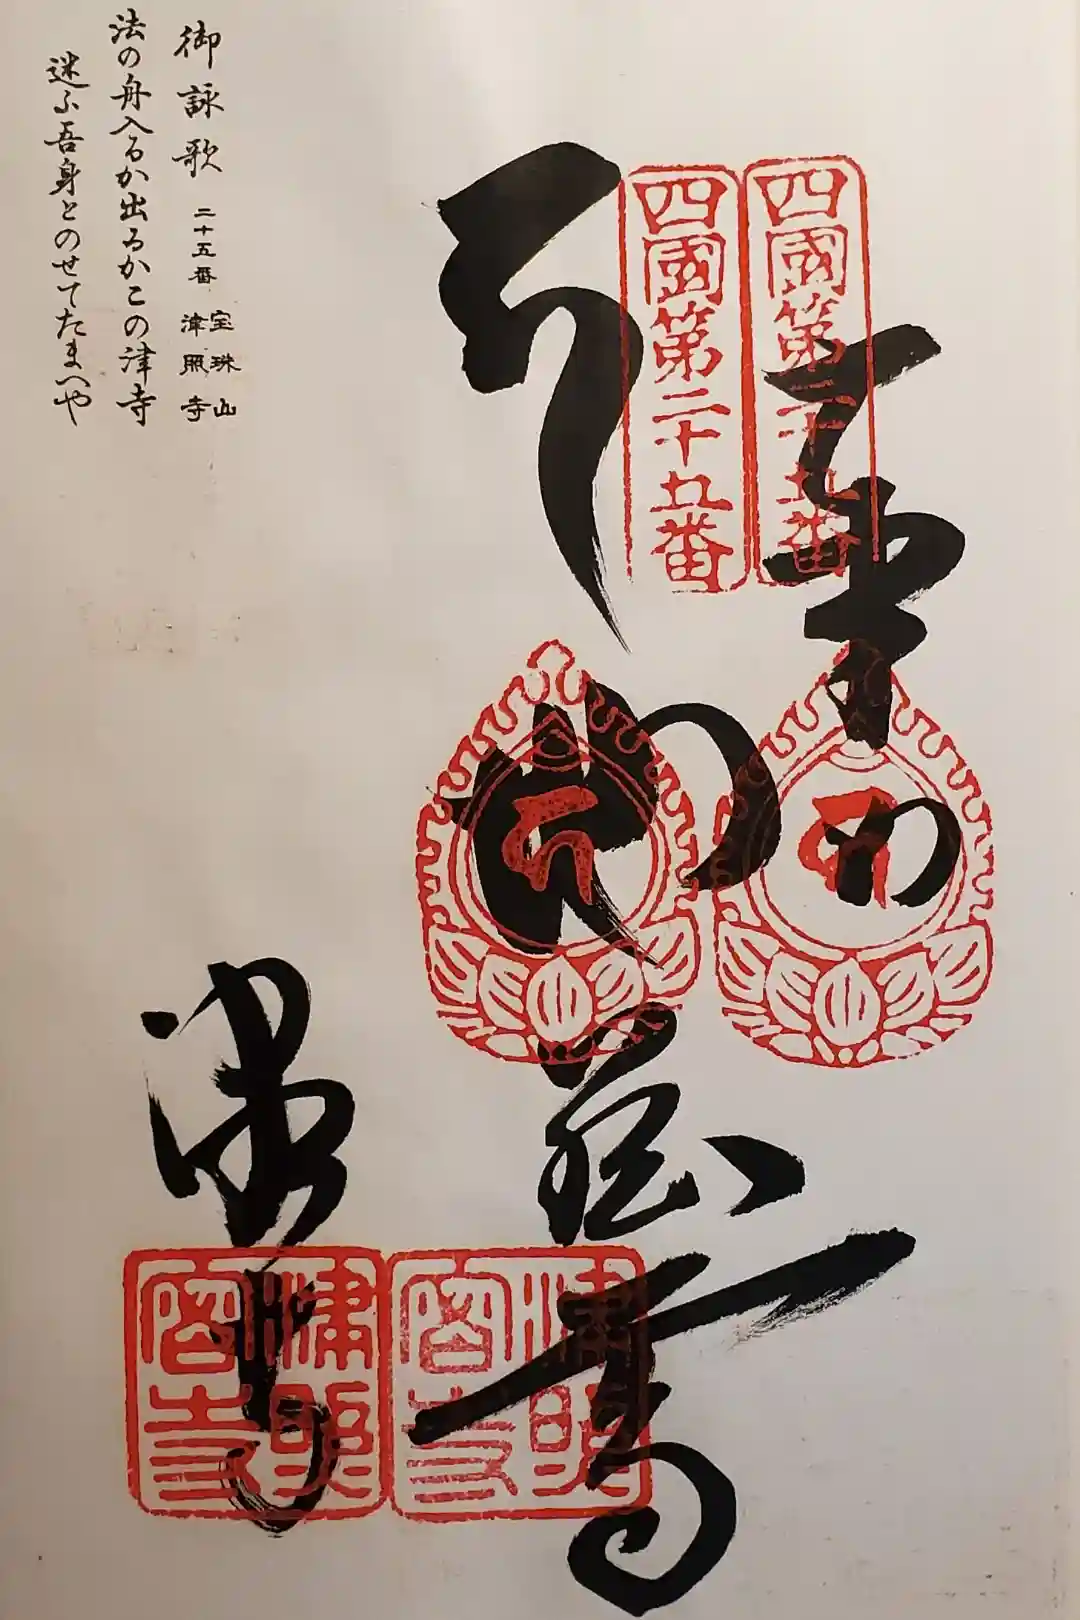 奉
四國第二十五番
四國第二十五番
御詠歌 二十五番 宝珠山 津照寺
法の舟入るか出るかこの津寺
迷ふ吾身とのせてたまへや
津照
密寺
津照
密寺